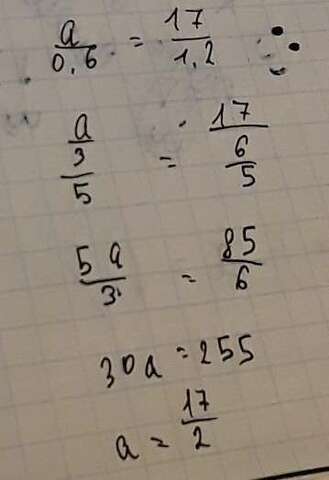 a/0,6 = 17/1,2
a/(3/5) = 17/(6/5)
5a/3 = 85/6
30a = 255
a = 17/2